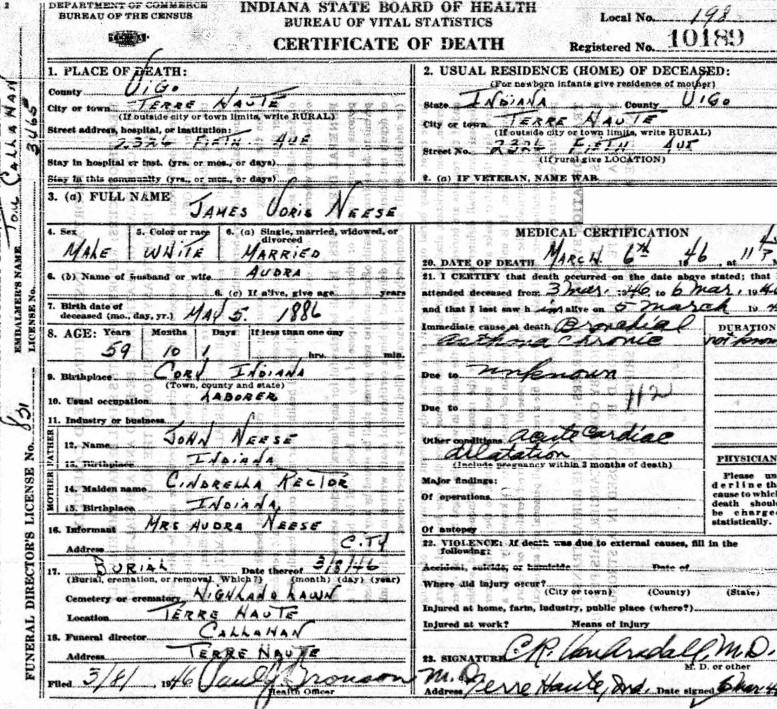 DEPARTMENT OF COMMERCE
BUREAU OF THE CENSUS
INDIANA STATE BOARD OF HEALTH
BUREAU OF VITAL STATISTICS
CERTIFICATE OF DEATH
Local No. 198
Registered No. 10189
1. PLACE OF DEATH:
County VIGO
City or town TERRE HAUTE
(If outside city or town limits, write RURAL)
Street address, hospital, or institution:
2326 FIFTH AVE
Stay in hospital or inst. (yrs. or mos., or days)
Stay in this community (yrs., or mos., or days)
2. USUAL RESIDENCE (HOME) OF DECEASED:
(For newborn infants give residence of mother)
State INDIANA County VIGO
City or town TERRE HAUTE
(If outside city or town limits, write RURAL)
Street No. 2326 FIFTH AVE
(If rural give LOCATION)
2. (a) IF VETERAN, NAME WAR
3. (a) FULL NAME JAMES VORIS NEESE
4. Sex MALE
5. Color or race WHITE
6. (a) Single, married, widowed, or divorced MARRIED
6. (b) Name of husband or wife AUDRA
6. (c) If alive, give age years
7. Birth date of deceased (mo., day, yr.) MAY 5. 1886
8. AGE: Years Months Days If less than one day
59 10 1 hrs. min.
9. Birthplace CORY INDIANA
(Town, county and state)
10. Usual occupation LABORER
11. Industry or business
FATHER
12. Name JOHN NEESE
13. Birthplace INDIANA
MOTHER
14. Maiden name CINDRELLA RECTOR
15. Birthplace INDIANA
16. Informant MRS AUDRA NEESE
Address CITY
17. BURIAL Date thereof 3/8/46
(Burial, cremation, or removal. Which?) (month) (day) (year)
Cemetery or crematory HIGHLAND LAWN
Location TERRE HAUTE
18. Funeral director CALLAHAN
Address TERRE HAUTE
Filed 3/8/ 1946 Paul Bronson M.D.
Health Officer
MEDICAL CERTIFICATION
20. DATE OF DEATH MARCH 6TH 1946, at 11
21. I CERTIFY that death occurred on the date above stated; that
attended deceased from 3 mar, 1946 to 6 mar, 194
and that I last saw him alive on 5 march 19
Immediate cause of death Bronchial
asthma chronic
DURATION
not known
Due to unknown
Due to
112
Other conditions acute cardiac
dilatation
(Include pregnancy within 3 months of death)
Major findings:
Of operations
Of autopsy
PHYSICIAN
Please un
derline the
cause to which
death should
be charge
statistically.
22. VIOLENCE: If death was due to external causes, fill in the following:
Accident, suicide, or homicide Date of
Where did injury occur?
(City or town) (County) (State)
Injured at home, farm, industry, public place (where?)
Injured at work? Means of injury
23. SIGNATURE C.R. Van Arsdall, M.D.
M. D. or other
Address Terre Haute, Ind. Date signed 6 Mar 4
EMBALMER'S NAME TOM CALLAHAN
LICENSE No. 3465
FUNERAL DIRECTOR'S LICENSE No. 831